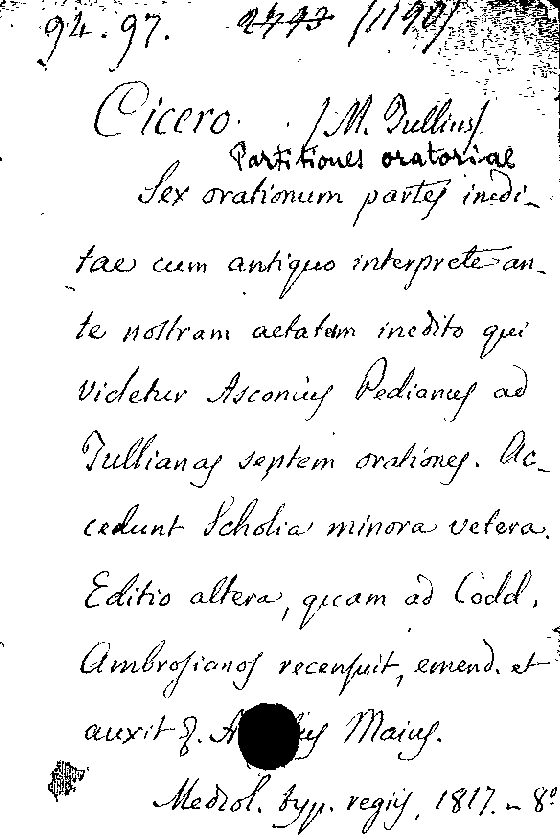 94.97. 2773 /1190/
Cicero. /M. Tullius/
Partitiones oratoriae
Sex orationum partes inedi-
tae cum antiquo interprete an-
te nostram aetatem inedito qui
videtur Asconius Pedianus ad
Tullianas septem orationes. Ac-
cedunt Scholia minora vetera.
Editio altera, quam ad Codd.
Ambrosianos recensuit, emend. et
auxit Maius.
Mediol. typ. regiis, 1817. 8°